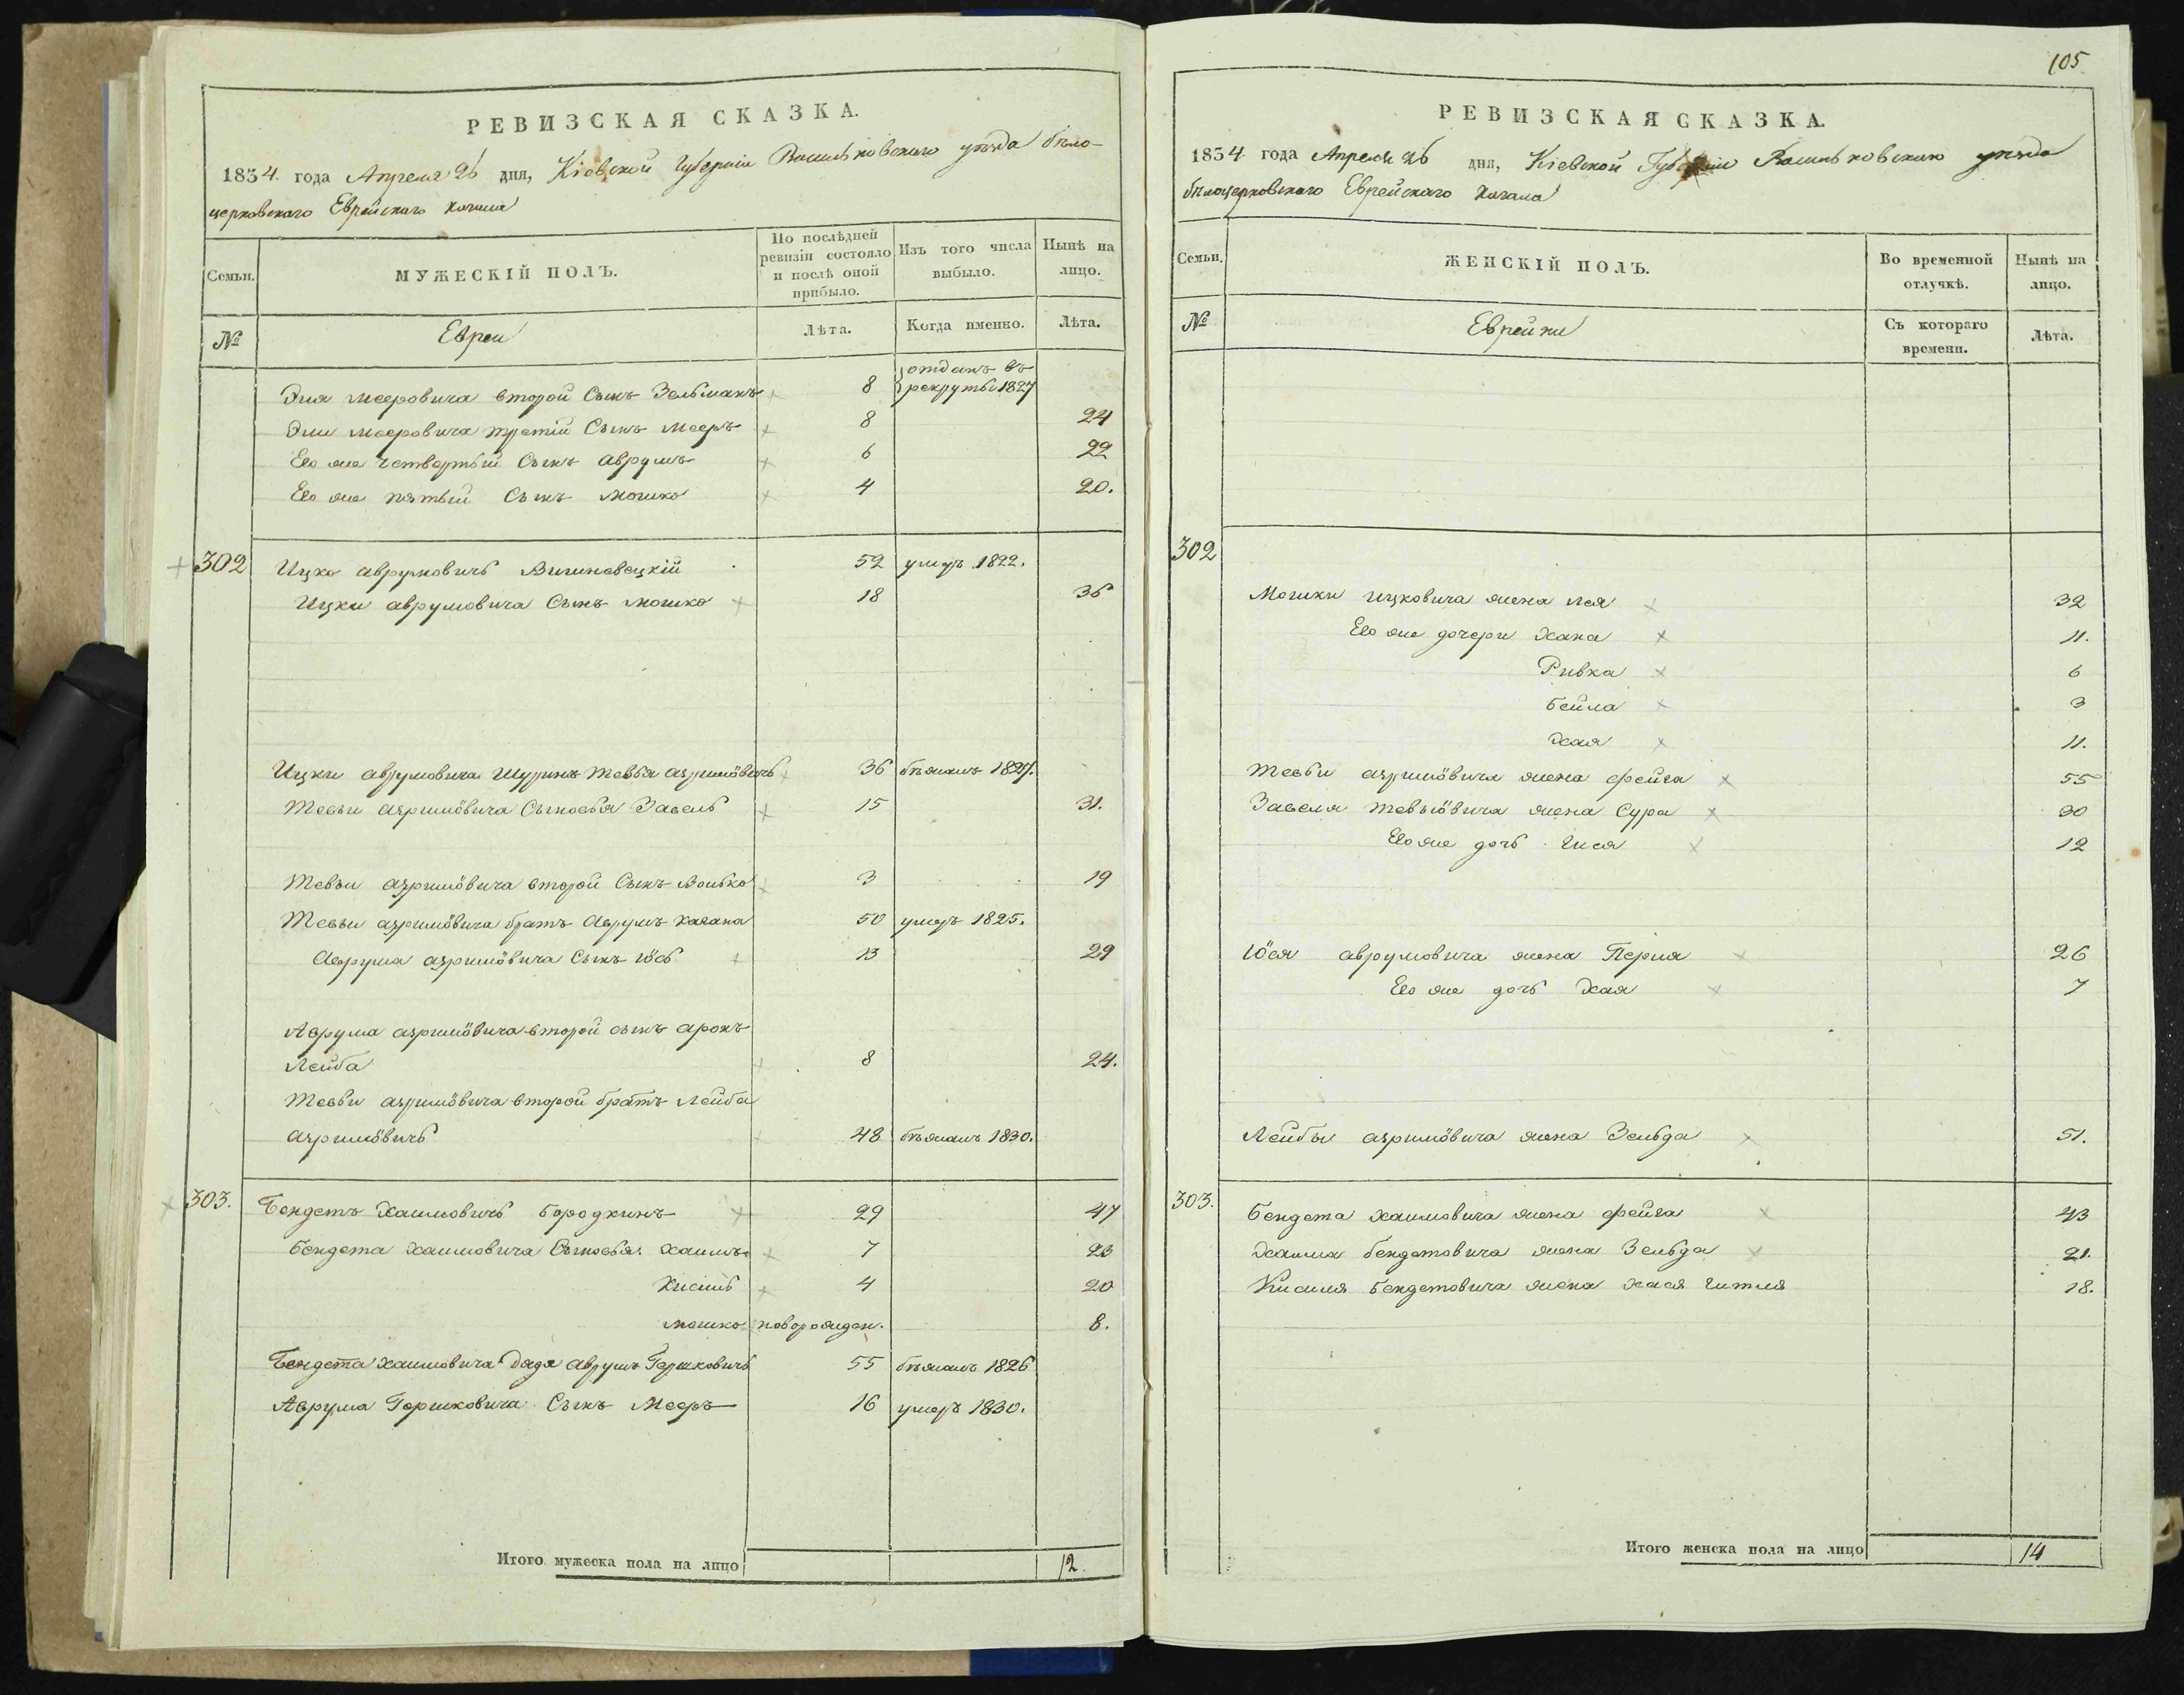 РЕВИЗСКАЯ СКАЗКА.
1834 года Апреля 26 дня, Кіевской Губерніи Васильковскаго уезда бѣло-
церковскаго Еврейскаго Кагала
Семьи.
МУЖЕСКІЙ ПОЛЪ.
По послѣдней ревизіи состояло и послѣ оной прибыло.
Изъ того числа выбыло.
Нынѣ на лицо.
№
Евреи
Лѣта.
Когда именно.
Лѣта.
Эля Мееровича второй Сынъ Зельманъ 8 отданъ въ рекруты 1827
Эли Мееровича третій Сынъ Мееръ 8 24
Его же четвертый Сынъ Аврумъ 6 22
Его же пятый Сынъ Мошко 4 20.
302 Ицко Аврумовичъ Вишневецкій 52 умеръ 1822.
Ицки Аврумовича Сынъ Мошко 18 36
Ицки Аврумовича Шуринъ Тевья Азріліовичъ 36 бѣжалъ 1827.
Тевьи Азріліовича Сыновья Завель 15 31.
Тевьи Азріліовича второй Сынъ Волько 3 19
Тевьи Азріліовича братъ Аврумъ Кагана 50 умеръ 1825.
Аврума Азріліовича Сынъ Іось 13 29
Аврума Азріліовича второй сынъ Аронъ
Лейба 8 24.
Тевьи Азріліовича второй братъ Лейба
Азріліовичъ 48 бѣжалъ 1830.
303. Бендетъ Хаимовичъ Бородкинъ 29 47
Бендета Хаимовича Сыновья Хаимъ 7 23
Кисиль 4 20
Мошко новорожден. 8.
Бендета Хаимовича Дядя Аврумъ Гершковичъ 55 бѣжалъ 1826
Аврума Гершковича Сынъ Мееръ 16 умеръ 1830.
Итого мужеска пола на лицо 12.
105
РЕВИЗСКАЯ СКАЗКА.
1834 года Апреля 26 дня, Кіевской Губерніи Васильковскаго уезда
бѣлоцерковскаго Еврейскаго Кагала
Семьи.
ЖЕНСКІЙ ПОЛЪ.
Во временной отлучкѣ.
Нынѣ на лицо.
№
Еврейки
Съ котораго времени.
Лѣта.
302
Мошки Ицковича жена Лея 32
Его же дочери Хана 11.
Ривка 6
Бейла 3
Хая 11.
Тевьи Азріліовича жена Фейга 55
Завеля Тевьіовича жена Сура 30
Его же дочь Гися 12
Іося Аврумовича жена Перля 26
Его же дочь Хая 7
Лейбы Азріліовича жена Зельда 51.
303. Бендета Хаимовича жена Фейга 43
Хаима Бендетовича жена Зельда 21.
Кисиля Бендетовича жена Хася Гитля 18.
Итого женска пола на лицо 14